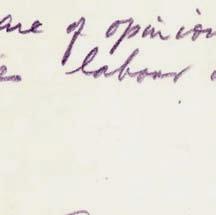 are of opinion
labour